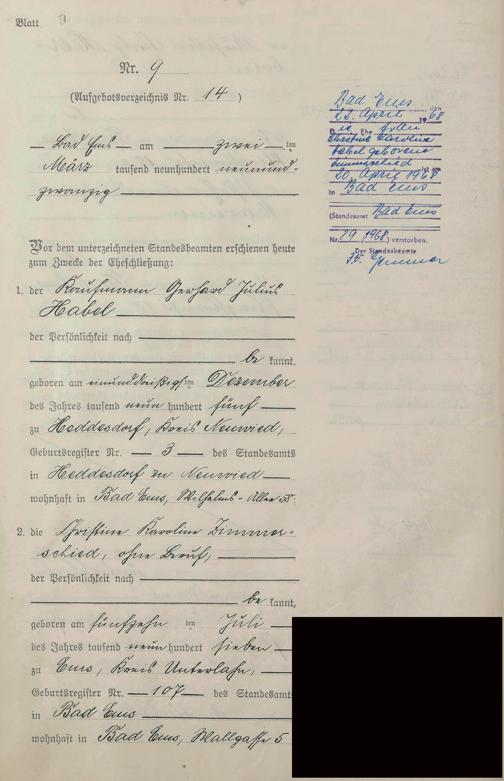 Blatt 9
Nr. 9
(Aufgebotsverzeichnis Nr. 14)
Bad Ems am zwei ten
März tausend neunhundert neunund-
zwanzig
Vor dem unterzeichneten Standesbeamten erschienen heute
zum Zwecke der Eheschließung:
1. der Kaufmann Gerhard Julius
Habel
der Persönlichkeit nach
be kannt,
geboren am einunddreißigsten Dezember
des Jahres tausend neun hundert fünf
zu Heddesdorf, Kreis Neuwied,
Geburtsregister Nr. 3 des Standesamts
in Heddesdorf zu Neuwied
wohnhaft in Bad Ems, Wilhelms-Allee
2. die Christine Karoline Zimmer-
schied, ohne Beruf,
der Persönlichkeit nach
be kannt,
geboren am fünfzehn ten Juli
des Jahres tausend neun hundert sieben
zu Ems, Kreis Unterlahn,
Geburtsregister Nr. 107 des Standesamt
in Bad Ems
wohnhaft in Bad Ems, Wallgasse 5
Bad Ems, den
April 1968
Die Ehefrau
Christine Karoline
Habel geborene
Zimmerschied ist am
20. April 1968
in Bad Ems
(Standesamt Bad Ems
Nr. 79/1968) verstorben.
Der Standesbeamte